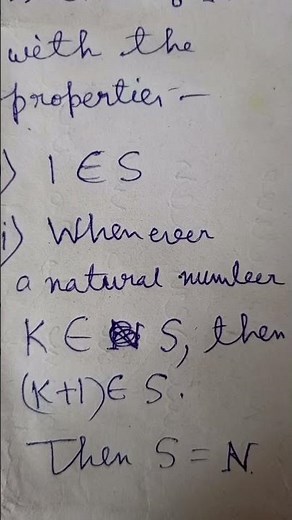 with the
properties —
) 1 ∈ S
i) Whenever
a natural number
K ∈ S, then
(K+1) ∈ S.
Then S = N.